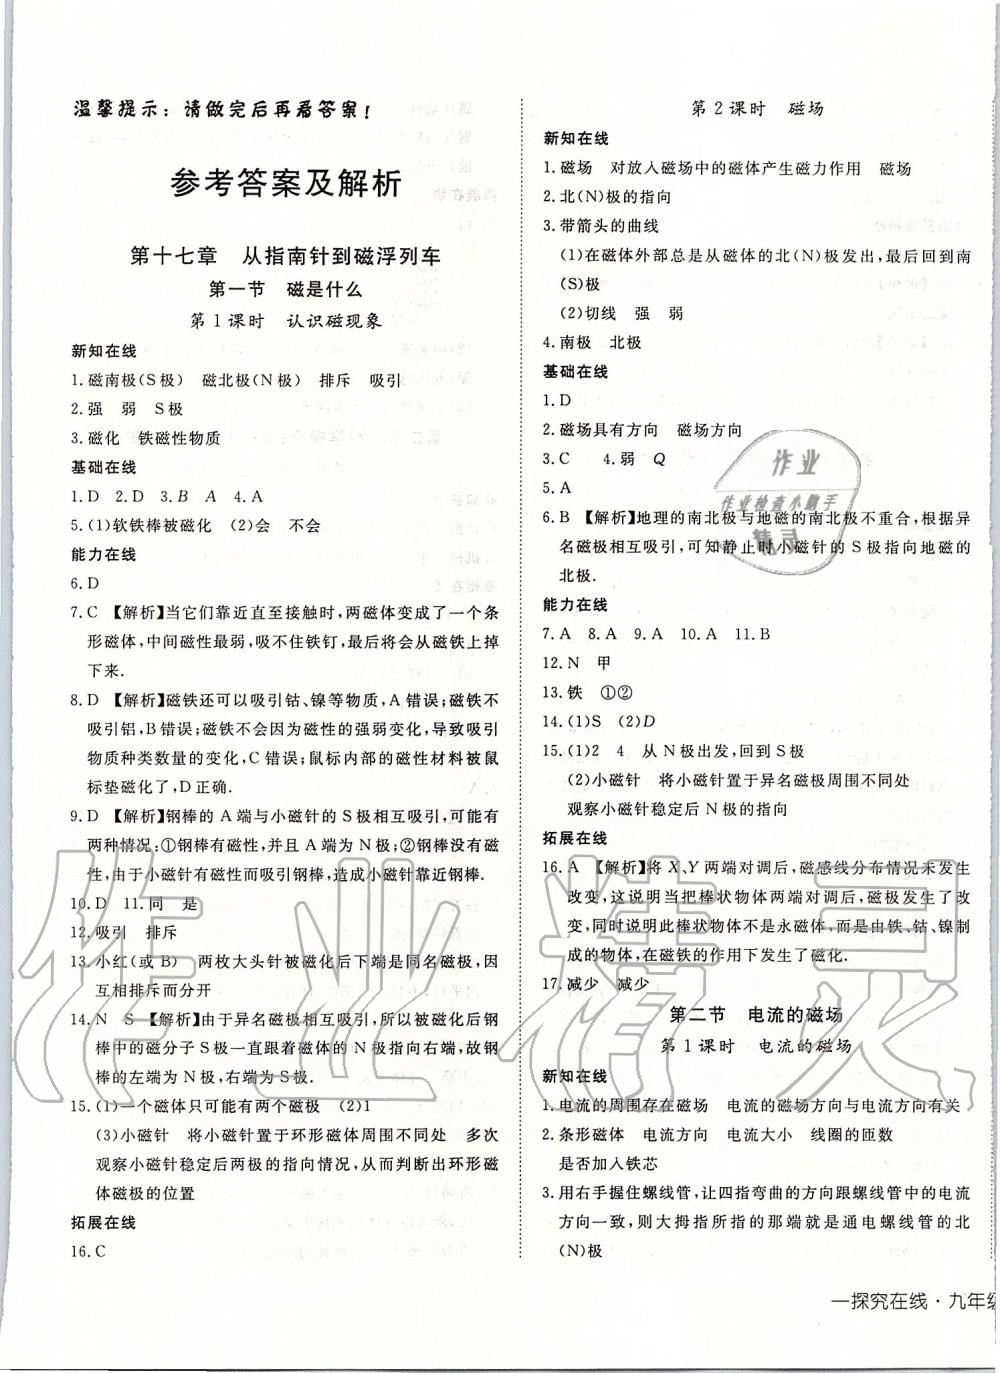 温馨提示：请做完后再看答案！
参考答案及解析
第十七章　从指南针到磁浮列车
第一节　磁是什么
第1课时　认识磁现象
新知在线
1.磁南极(S极)　磁北极(N极)　排斥　吸引
2.强　弱　S极
3.磁化　铁磁性物质
基础在线
1.D　2.D　3.B　A　4.A
5.(1)软铁棒被磁化　(2)会　不会
能力在线
6.D
7.C　【解析】当它们靠近直至接触时,两磁体变成了一个条
形磁体,中间磁性最弱,吸不住铁钉,最后将会从磁铁上掉
下来.
8.D　【解析】磁铁还可以吸引钴、镍等物质,A错误;磁铁不
吸引铝,B错误;磁铁不会因为磁性的强弱变化,导致吸引
物质种类数量的变化,C错误;鼠标内部的磁性材料被鼠
标垫磁化了,D正确.
9.D　【解析】钢棒的A端与小磁针的S极相互吸引,可能有
两种情况:①钢棒有磁性,并且A端为N极;②钢棒没有磁
性,由于小磁针有磁性而吸引钢棒,造成小磁针靠近钢棒.
10.D　11.同　是
12.吸引　排斥
13.小红(或B)　两枚大头针被磁化后下端是同名磁极,因
互相排斥而分开
14.N　S　【解析】由于异名磁极相互吸引,所以被磁化后钢
棒中的磁分子S极一直跟着磁体的N极指向右端,故钢
棒的左端为N极,右端为S极.
15.(1)一个磁体只可能有两个磁极　(2)1
(3)小磁针　将小磁针置于环形磁体周围不同处　多次
观察小磁针稳定后两极的指向情况,从而判断出环形磁
体磁极的位置
拓展在线
16.C
第2课时　磁场
新知在线
1.磁场　对放入磁场中的磁体产生磁力作用　磁场
2.北(N)极的指向
3.带箭头的曲线
(1)在磁体外部总是从磁体的北(N)极发出,最后回到南
(S)极
(2)切线　强　弱
4.南极　北极
基础在线
1.D
2.磁场具有方向　磁场方向
3.C　4.弱　Q
5.A
6.B　【解析】地理的南北极与地磁的南北极不重合,根据异
名磁极相互吸引,可知静止时小磁针的S极指向地磁的
北极.
能力在线
7.A　8.A　9.A　10.A　11.B
12.N　甲
13.铁　①②
14.(1)S　(2)D
15.(1)2　4　从N极出发,回到S极
(2)小磁针　将小磁针置于异名磁极周围不同处
观察小磁针稳定后N极的指向
拓展在线
16.A　【解析】将X、Y两端对调后,磁感线分布情况未发生
改变,这说明当把棒状物体两端对调后,磁极发生了改
变,同时说明此棒状物体不是永磁体,而是由铁、钴、镍制
成的物体,在磁铁的作用下发生了磁化.
17.减少　减少
第二节　电流的磁场
第1课时　电流的磁场
新知在线
1.电流的周围存在磁场　电流的磁场方向与电流方向有关
2.条形磁体　电流方向　电流大小　线圈的匝数
是否加入铁芯
3.用右手握住螺线管,让四指弯曲的方向跟螺线管中的电流
方向一致,则大拇指所指的那端就是通电螺线管的北
(N)极
一探究在线·九年级
作业
作业检查小助手
精灵
作业精灵